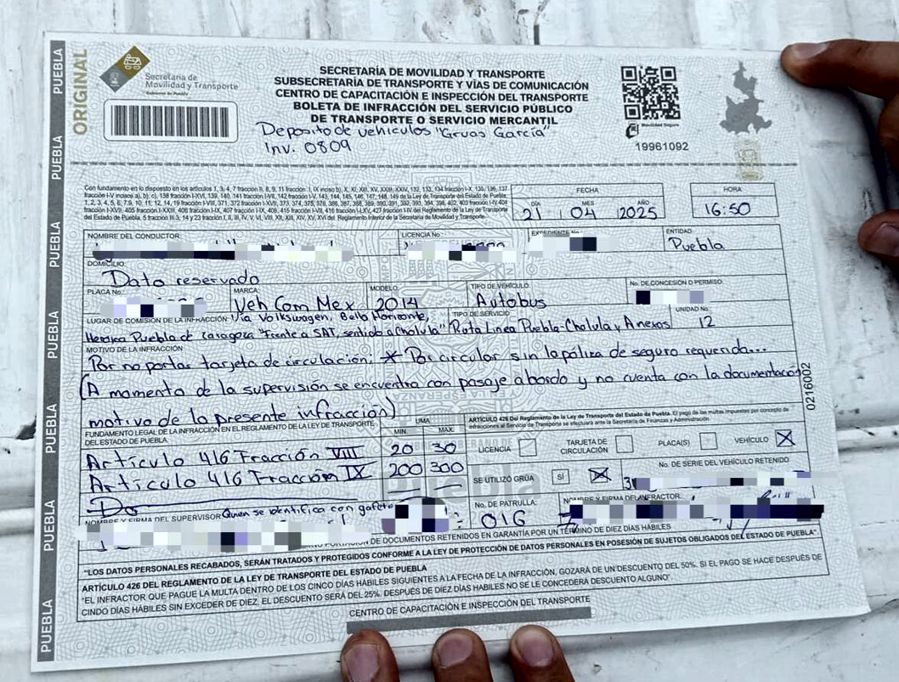 PUEBLA PUEBLA PUEBLA PUEBLA PUEBLA PUEBLA PUEBLA
ORIGINAL
Secretaría de
Movilidad y Transporte
Gobierno de Puebla
SECRETARÍA DE MOVILIDAD Y TRANSPORTE
SUBSECRETARÍA DE TRANSPORTE Y VÍAS DE COMUNICACIÓN
CENTRO DE CAPACITACIÓN E INSPECCIÓN DEL TRANSPORTE
BOLETA DE INFRACCIÓN DEL SERVICIO PÚBLICO
DE TRANSPORTE O SERVICIO MERCANTIL
Deposito de vehículos "Gruas García"
Inv. 0809
Movilidad Segura
19961092
FECHA
HORA
DÍA MES AÑO
21 04 2025
16:50
NOMBRE DEL CONDUCTOR:
LICENCIA No.
EXPEDIENTE No.
ENTIDAD
Puebla
DOMICILIO:
Dato reservado
PLACA No.
MARCA
Veh Com Mex
MODELO
2014
TIPO DE VEHÍCULO
Autobus
No. DE CONCESIÓN O PERMISO
LUGAR DE COMISIÓN DE LA INFRACCIÓN:
Vía Volkswagen, Bello Horizonte,
Heroica Puebla de Zaragoza "Frente a SAT, sentido a Cholula"
TIPO DE SERVICIO
Ruta Linea Puebla-Cholula y Anexos
UNIDAD No.
12
MOTIVO DE LA INFRACCIÓN
Por no portar tarjeta de circulación: * Por circular sin la póliza de seguro requerida...
(A momento de la supervisión se encuentra con pasaje abordo y no cuenta con la documentación
motivo de la presente infracción)
0216002
FUNDAMENTO LEGAL DE LA INFRACCIÓN EN EL REGLAMENTO DE LA LEY DE TRANSPORTE
DEL ESTADO DE PUEBLA.
UMA:
MIN MAX
Artículo 416 Fracción VIII 20 30
Artículo 416 Fracción IX 200 300
Do
ARTÍCULO 426 Del Reglamento de la Ley de Transporte del Estado de Puebla. El pago de las multas impuestas por concepto de
infracciones al Servicio de Transporte se efectuará ante la Secretaría de Finanzas y Administración.
LICENCIA
TARJETA DE
CIRCULACIÓN
PLACA(S)
VEHÍCULO X
SE UTILIZÓ GRÚA
SÍ
X
No. DE SERIE DEL VEHÍCULO RETENIDO
NOMBRE Y FIRMA DEL SUPERVISOR Quien se identifica con gafete
No. DE PATRULLA:
016
NOMBRE Y FIRMA DEL INFRACTOR
DE DOCUMENTOS RETENIDOS EN GARANTÍA POR UN TÉRMINO DE DIEZ DÍAS HÁBILES
"LOS DATOS PERSONALES RECABADOS, SERÁN TRATADOS Y PROTEGIDOS CONFORME A LA LEY DE PROTECCIÓN DE DATOS PERSONALES EN POSESIÓN DE SUJETOS OBLIGADOS DEL ESTADO DE PUEBLA"
ARTÍCULO 426 DEL REGLAMENTO DE LA LEY DE TRANSPORTE DEL ESTADO DE PUEBLA
"EL INFRACTOR QUE PAGUE LA MULTA DENTRO DE LOS CINCO DÍAS HÁBILES SIGUIENTES A LA FECHA DE LA INFRACCIÓN, GOZARÁ DE UN DESCUENTO DEL 50%. SI EL PAGO SE HACE DESPUÉS DE
CINDO DÍAS HÁBILES SIN EXCEDER DE DIEZ, EL DESCUENTO SERÁ DEL 25%. DESPUÉS DE DIEZ DÍAS HÁBILES NO SE LE CONCEDERÁ DESCUENTO ALGUNO"
CENTRO DE CAPACITACIÓN E INSPECCIÓN DEL TRANSPORTE